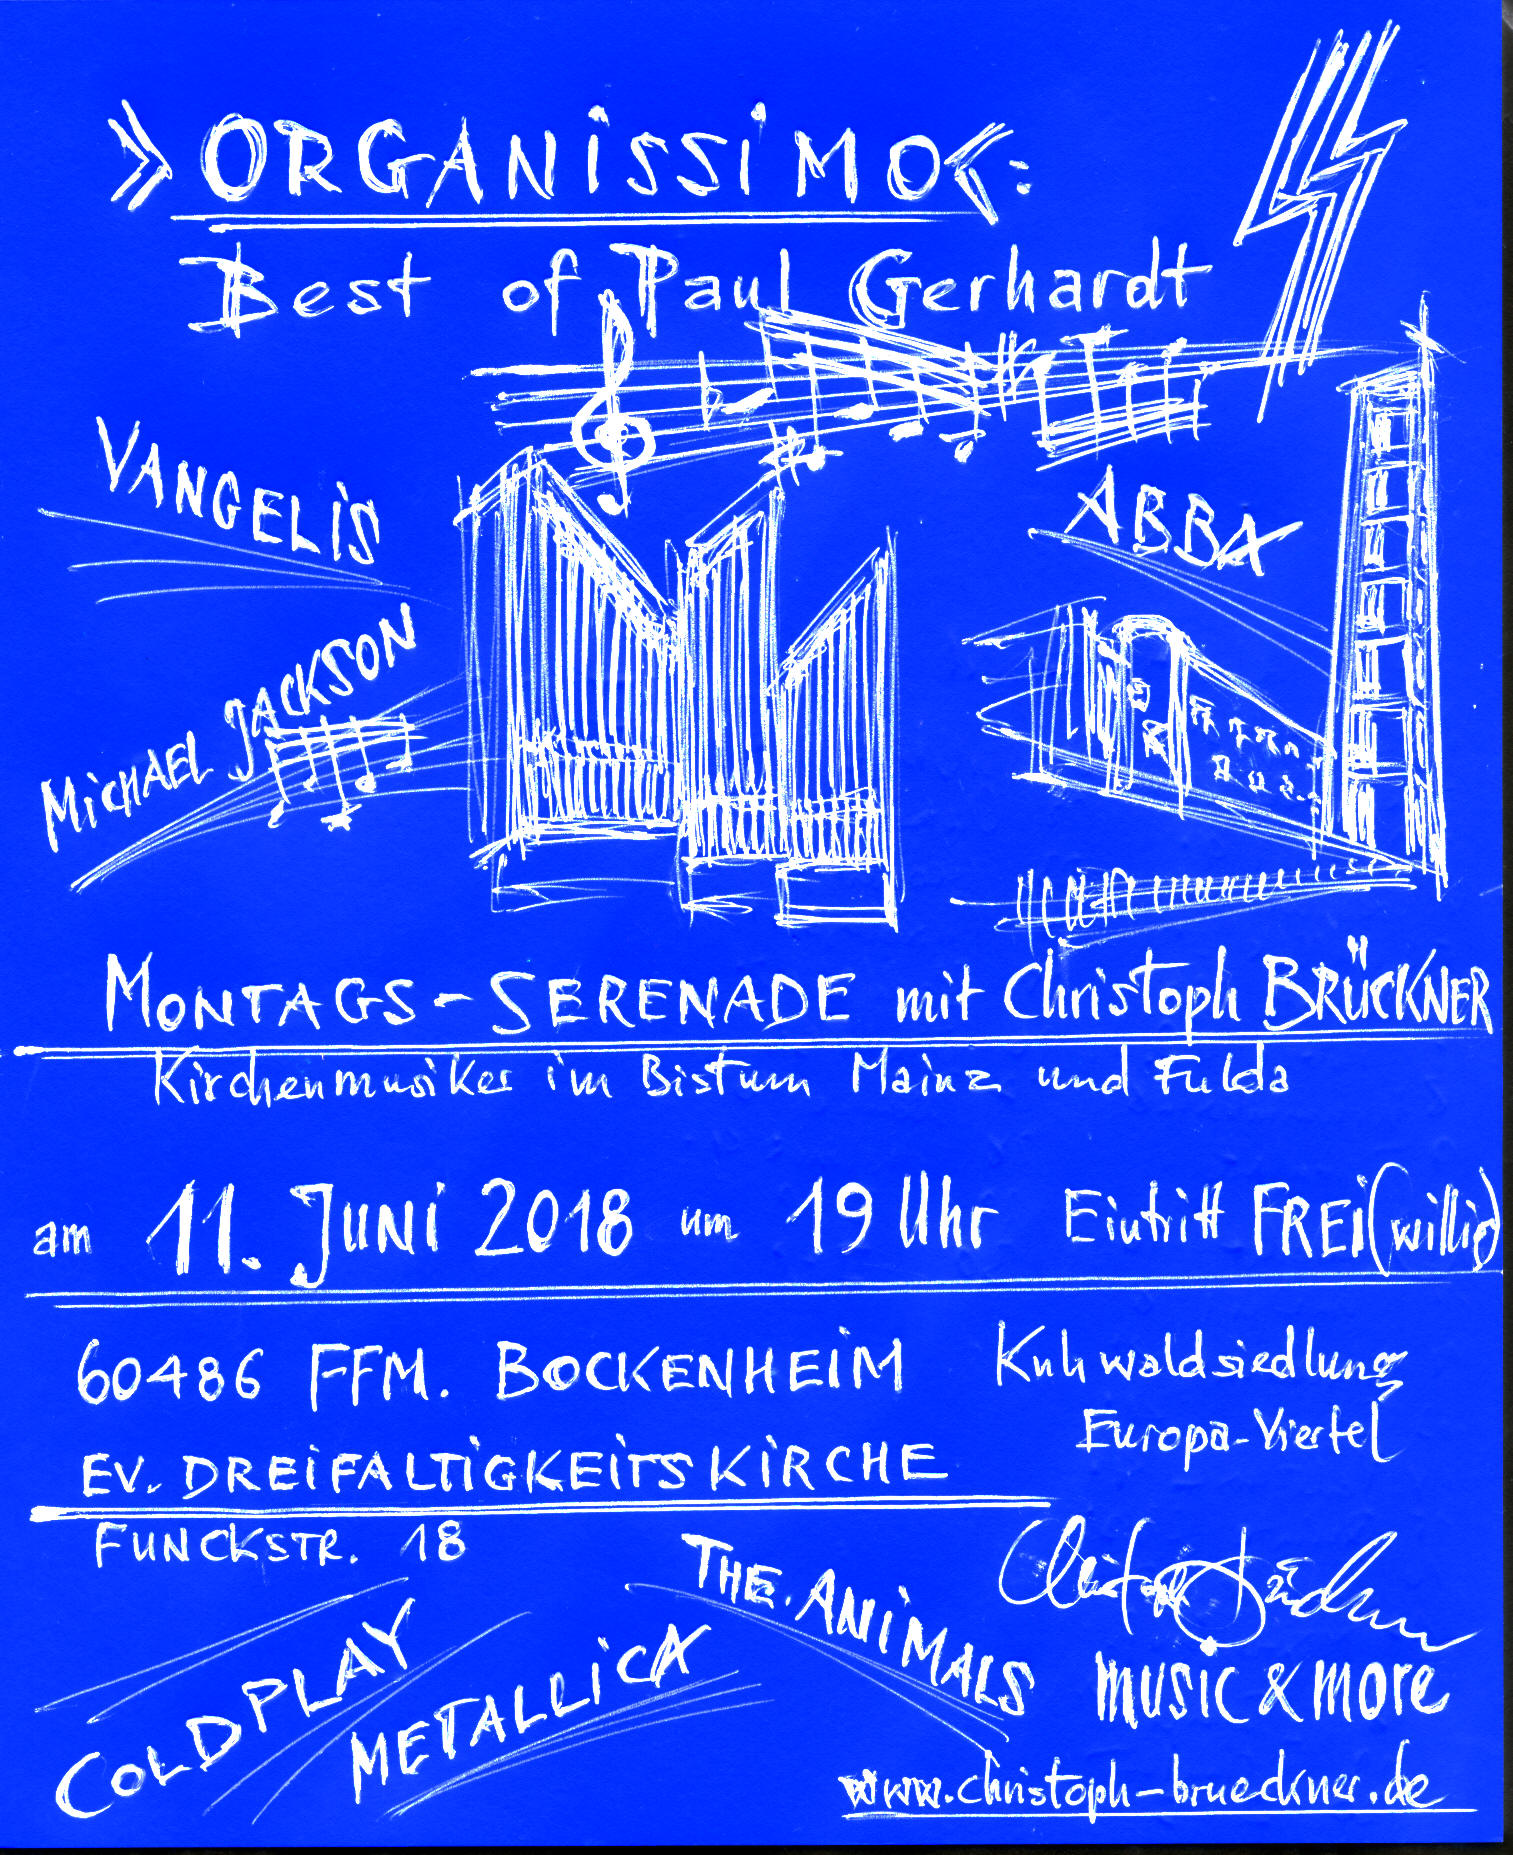 »ORGANiSSiMO«:
Best of Paul Gerhardt
VANGELiS
ABBA
MiCHAEL JACKSON
MONTAGS-SERENADE mit Christoph BRÜCKNER
Kirchenmusiker im Bistum Mainz und Fulda
am 11. JUNi 2018 um 19 Uhr Eintritt FREi(willig)
60486 FFM. BOCKENHEiM
Kuhwaldsiedlung
Europa-Viertel
EV. DREiFALTiGKEiTSKiRCHE
FUNCKSTR. 18
THE ANiMALS
Christoph Brückner
COLDPLAY
METALLiCA
music & more
www.christoph-brueckner.de